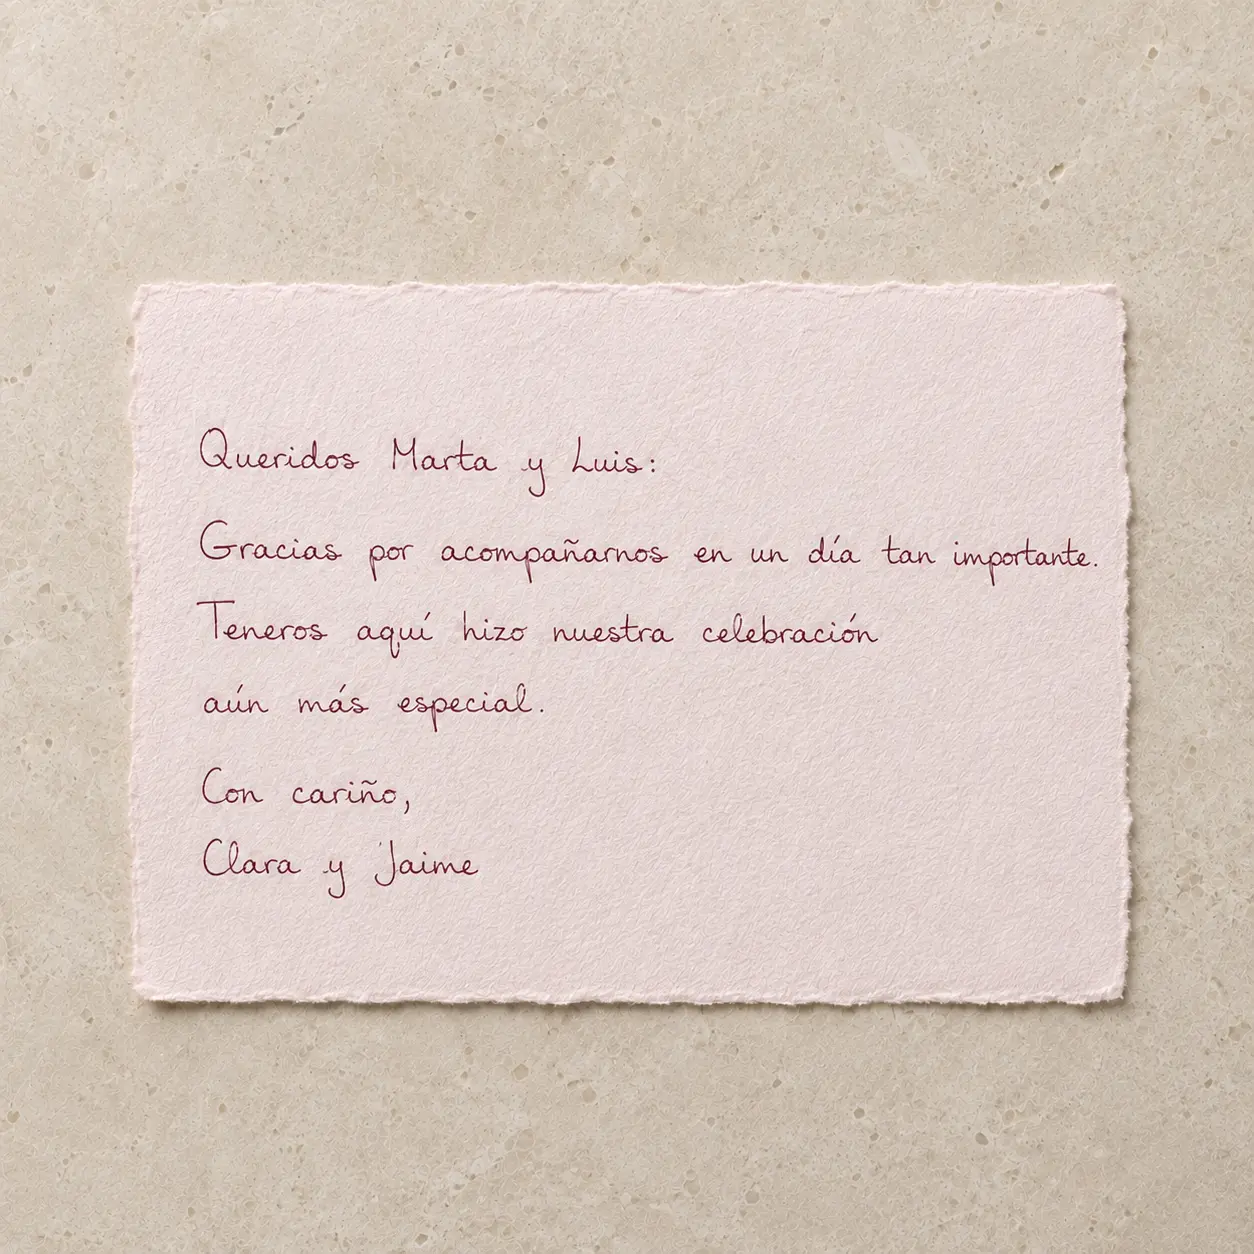 Queridos Marta y Luis:
Gracias por acompañarnos en un día tan importante.
Teneros aquí hizo nuestra celebración
aún más especial.
Con cariño,
Clara y Jaime